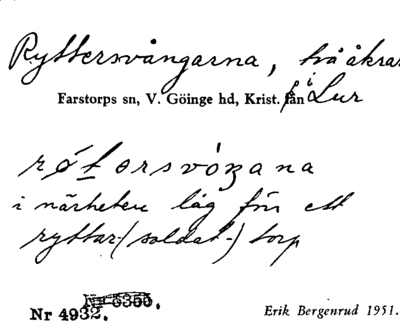 Ryttersvångarna, två åkrar
i Lur
Farstorps sn, V. Göinge hd, Krist. län
røtersvóŋana
i närheten låg förr ett
ryttar-(soldat-) torp
Nr 5355.
Nr 4932.
Erik Bergenrud 1951.